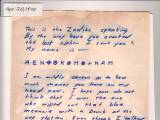 This is the Zodiac speaking
By the way have you cracked
the last cipher I sent you?
My name is —
A E N ⊕ K ⊕ M ⊕ N A M
I am mildly cerous as to how
much money you have on my
head now. I hope you do not
think that I was the one
who wiped out that blue
meannie with a bomb at the
cop station. Even though I talked